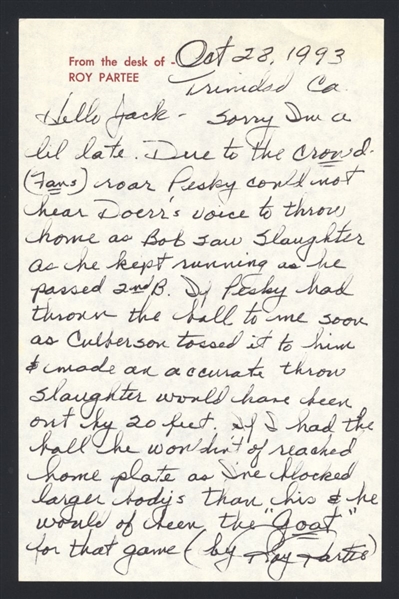 From the desk of - Oct 28, 1993
ROY PARTEE
Trinidad Ca.
Hello Jack - Sorry I'm a
lil late. Due to the crowd-
(Fans) roar Pesky could not
hear Doerr's voice to throw
home as Bob saw Slaughter
as he kept running as he
passed 2nd B. If Pesky had
thrown the ball to me soon
as Culberson tossed it to him
& made an accurate throw
Slaughter would have been
out by 20 feet. If I had the
ball he wouldn't of reached
home plate as I've blocked
larger bodys than his & he
would of been the "Goat"
for that game (by Roy Partee)